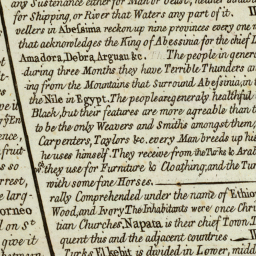 any Sustenance either for Man or beast, neither
for Shipping, or River that Waters any part of it.
vellers in Abeſsinia reckon up nine provinces every one
that acknowledges the King of Abeſsinia for the chief
Amadora, Debra, Arguan &c. The people in gener
during three Months they have Terrible Thunders a
ing from the Mountains that Surround Abeſsinia, in
the Nile in Egypt. The people are generaly healthful
Black, but their features are more agreable than t
to be the only Weavers and Smiths amongst them,
Carpenters, Taylors &c. every Man breeds up his
he uses himself. They receive from the Turks & Arab
they use for Furniture & Cloathing; and the Tur
with some fine Horses.
rally Comprehended under the name of Ethio
Wood, and Ivory The Inhabitants were once Chris
tian Churches, Napata is their chief Town. T
quent this and the adjacent countries
Turks, El kebit is divided in Lower, midd
ence,
fruit
so
rrest,
large
orneo
on S
give it